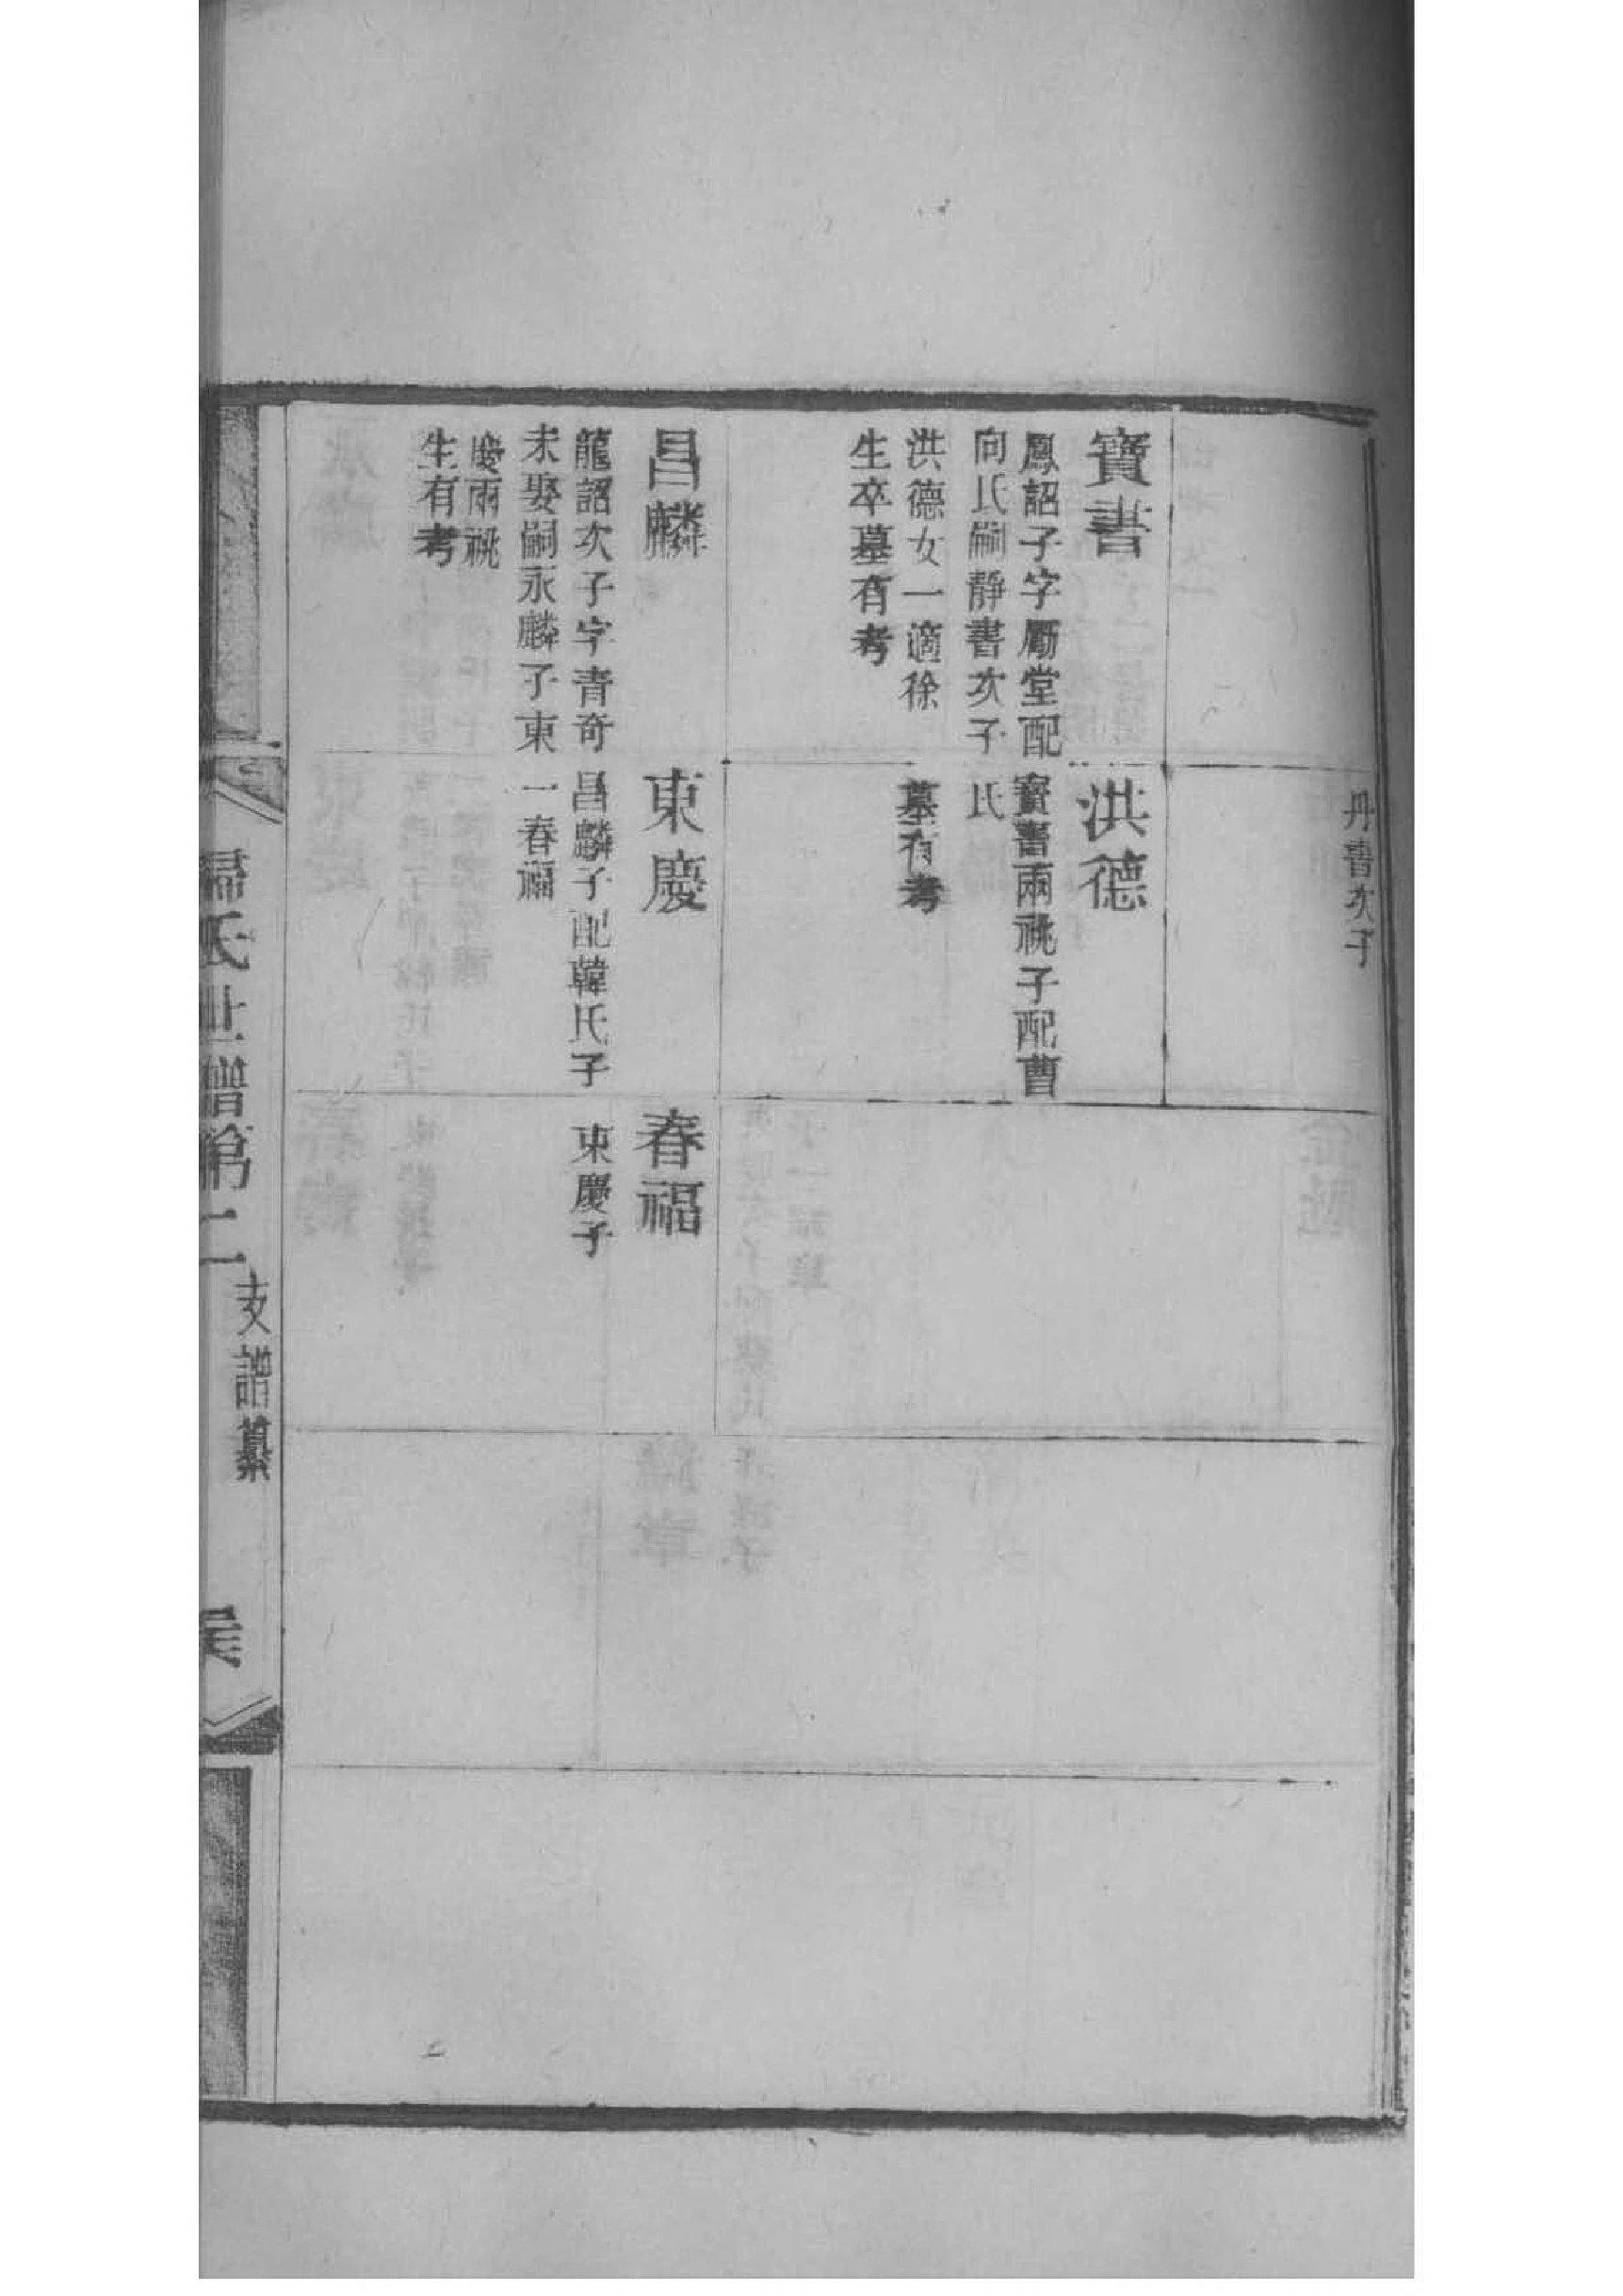 丹書次子
寶書
鳳詔子字勵堂配
向氏嗣靜書次子
洪德女一適徐
生卒墓有考
洪德
寶書兩祧子配曹
氏
墓有考
昌麟
龍詔次子字青奇
未娶嗣永麟子東
慶兩祧
生有考
東慶
昌麟子配韓氏子
一春福
春福
東慶子
氏世譜第二
支譜纂